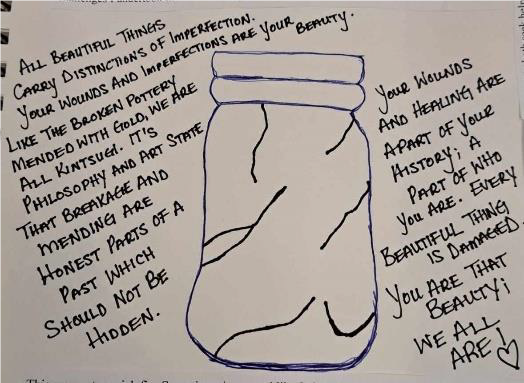 ALL BEAUTIFUL THINGS
CARRY DISTINCTIONS OF IMPERFECTION.
YOUR WOUNDS AND IMPERFECTIONS ARE YOUR BEAUTY.
LIKE THE BROKEN POTTERY
MENDED WITH GOLD, WE ARE
ALL KINTSUGI. IT'S
PHILOSOPHY AND ART STATE
THAT BREAKAGE AND
MENDING ARE
HONEST PARTS OF A
PAST WHICH
SHOULD NOT BE
HIDDEN.
YOUR WOUNDS
AND HEALING ARE
APART OF YOUR
HISTORY; A
PART OF WHO
YOU ARE. EVERY
BEAUTIFUL THING
IS DAMAGED.
YOU ARE THAT
BEAUTY;
WE ALL
ARE!